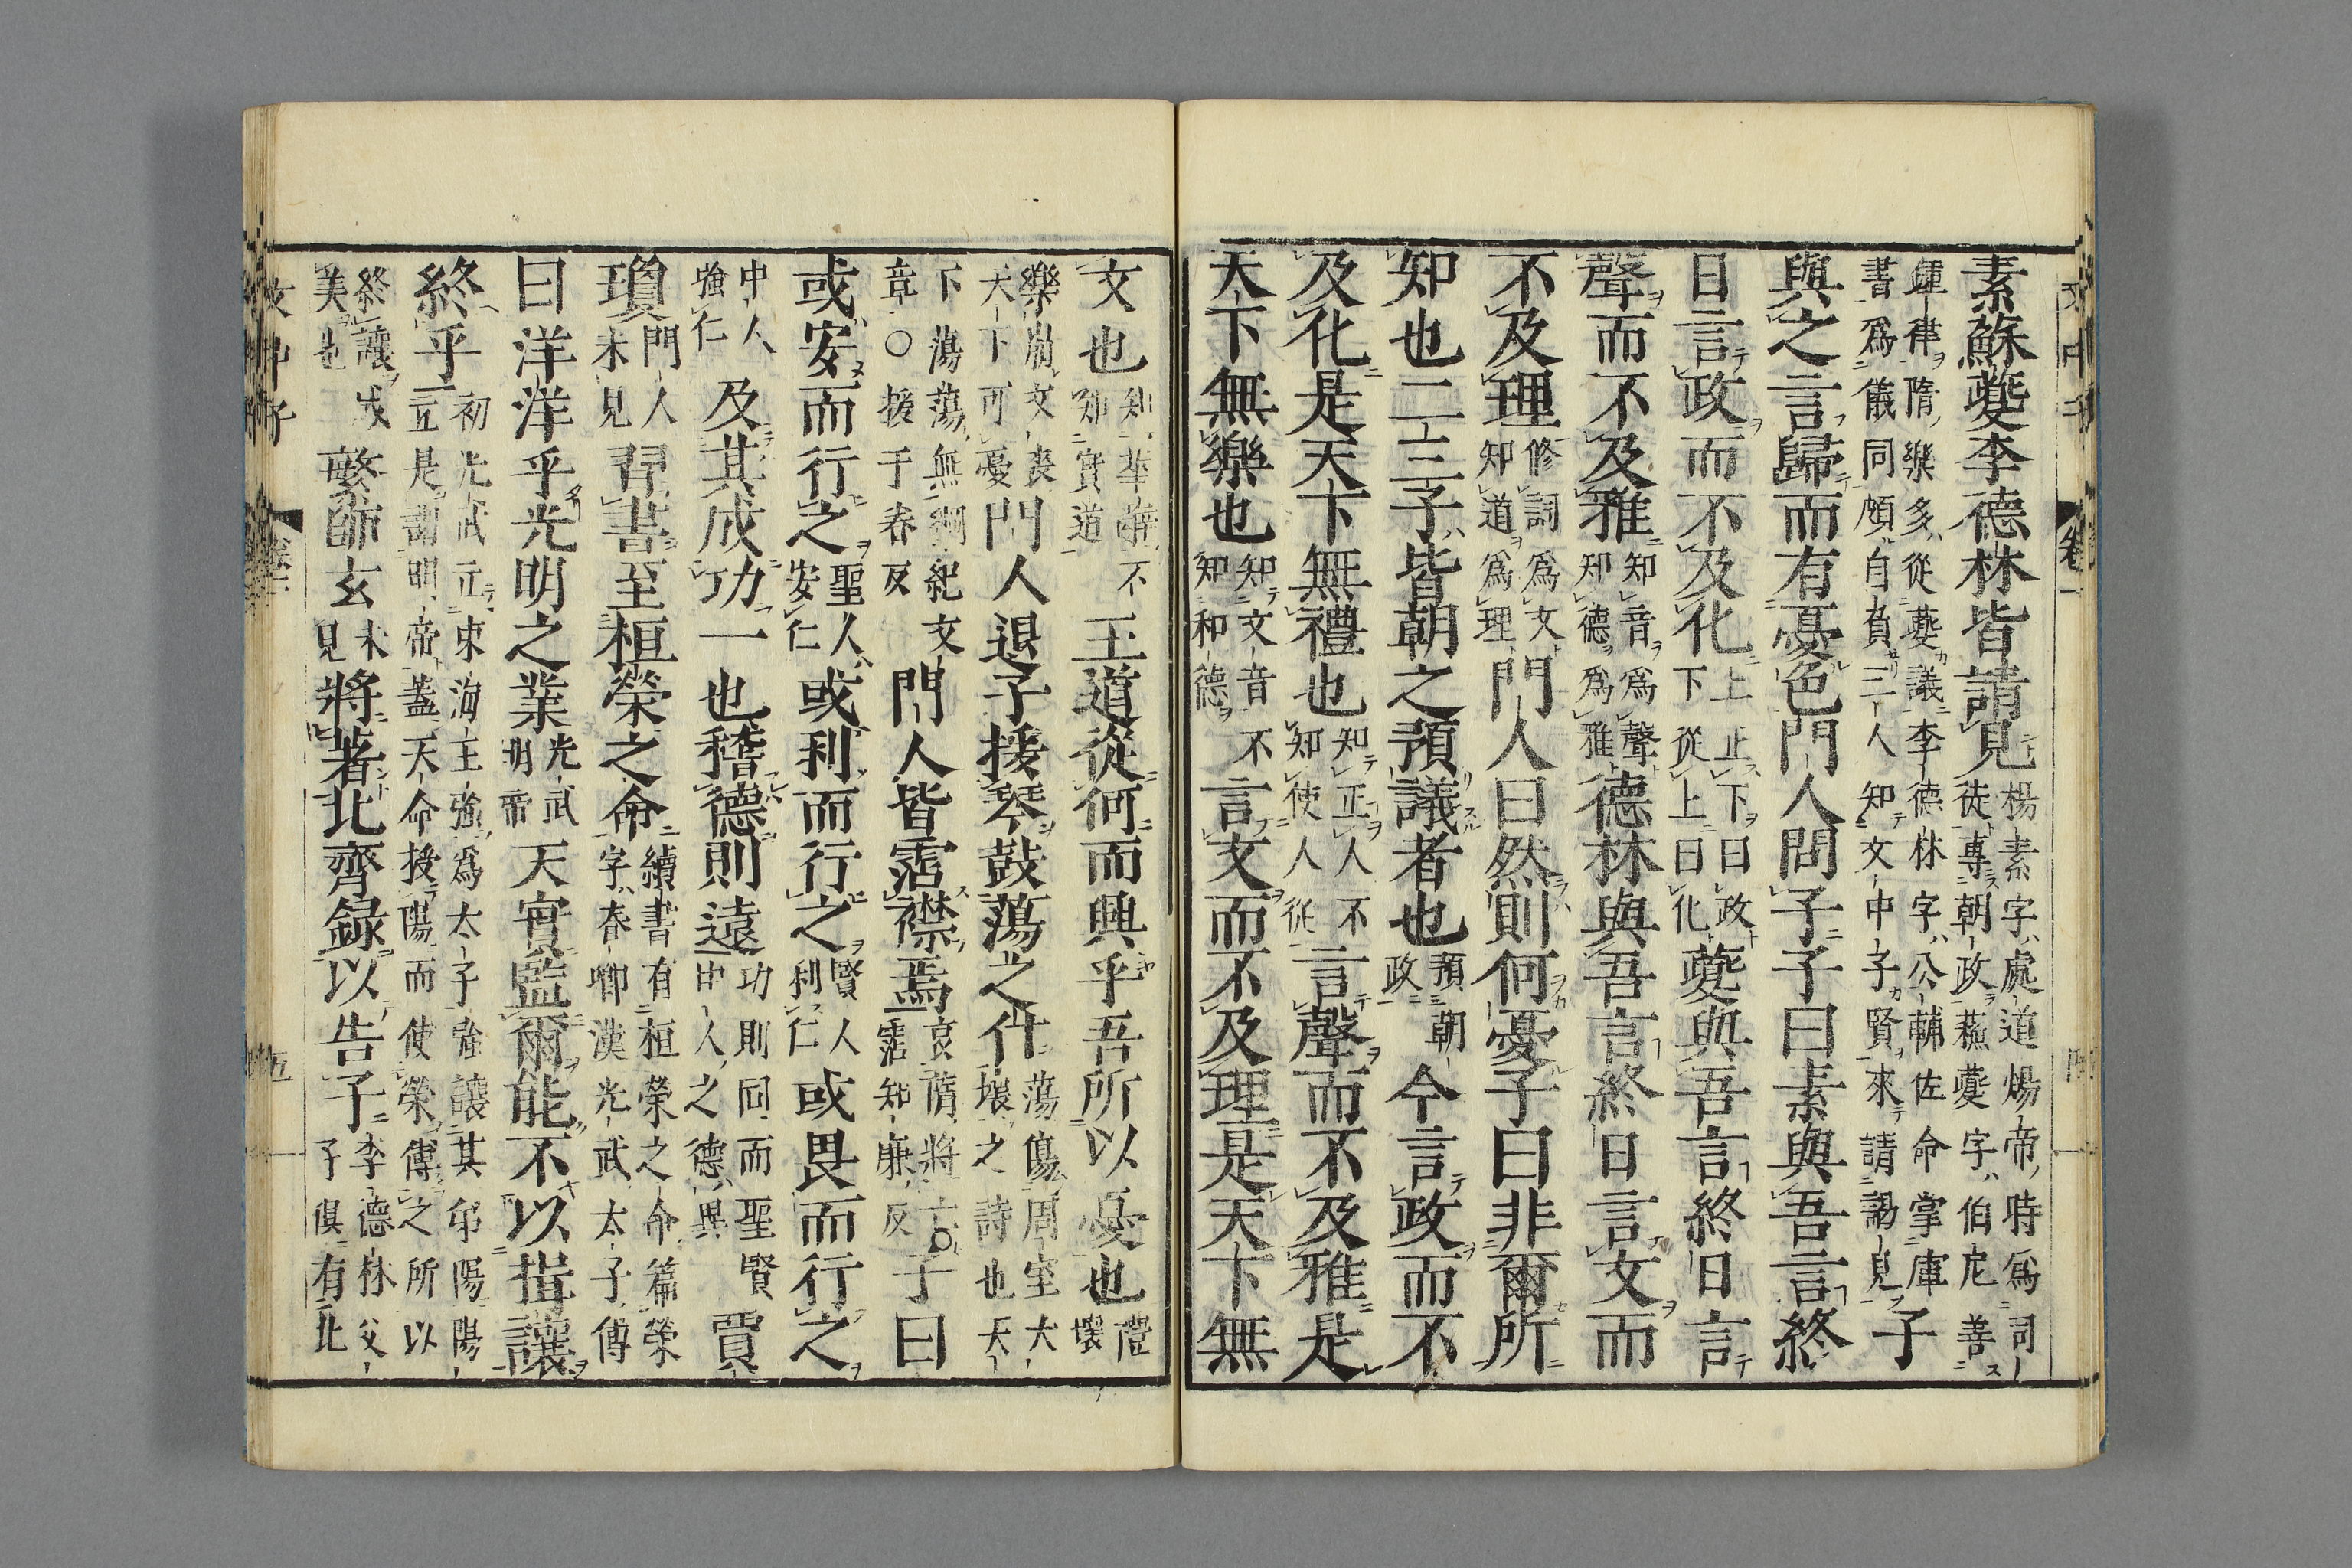 素蘇夔李德林皆請見楊素字處道煬帝時爲司徒專朝政蘇夔字伯尼善
鍾律隋樂多從夔議李德林字公輔佐命掌庫書爲儀同頗自負三人知文中子賢來請謁見子
與之言歸而有憂色門人問子子曰素與吾言終
日言政而不及化上正下曰政下從上曰化夔與吾言終日言
聲而不及雅知音爲聲知德爲雅德林與吾言終日言文而
不及理修詞爲文知道爲理門人曰然則何憂子曰非爾所
知也二三子皆朝之預議者也預朝政今言政而不
及化是天下無禮也知正人不知使人從言聲而不及雅是
天下無樂也知文音不知和德言文而不及理是天下無
文也知華辭不知實道王道從何而興乎吾所以憂也禮壞
樂崩文喪天下可憂門人退子援琴鼓蕩之什蕩傷周室大壞之詩也天
下蕩蕩無綱紀文章○援于春反門人皆霑襟焉哀隋將亡○霑知廉反子曰
或安而行之聖人安仁或利而行之賢人利仁或畏而行之
中人強仁及其成功一也稽德則遠功則同而聖賢中人之德異賈
瓊門人未見習書至桓榮之命續書有桓榮之命篇榮字春卿漢光武太子傅
曰洋洋乎光明之業光武明帝天實監爾能不以揖讓
終乎初光武立東海王疆爲太子疆讓其印陽陽立是謂明帝蓋天命授陽而使榮傅之所以
終讓成美也繁師玄未見將著北齊錄以告子李德林父子俱有北
文中子 卷一 四
文中子 卷一 五